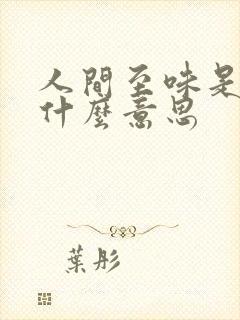 人間至味是
什麼意思
葉彤